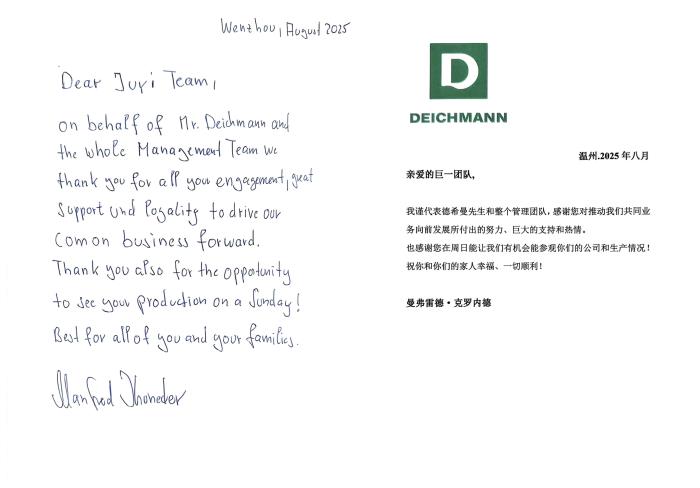 Wenzhou, August 2025
Dear Juyi Team,
on behalf of Mr. Deichmann and
the whole Management Team we
thank you for all you engagement, great
support und logality to drive our
Comon business forward.
Thank you also for the opportunity
to see your production on a Sunday!
Best for all of you and your families.
Manfred
D
DEICHMANN
温州.2025 年八月
亲爱的巨一团队,
我谨代表德希曼先生和整个管理团队, 感谢您对推动我们共同业
务向前发展所付出的努力、巨大的支持和热情。
也感谢您在周日能让我们有机会能参观你们的公司和生产情况！
祝你和你们的家人幸福、一切顺利！
曼弗雷德・克罗内德